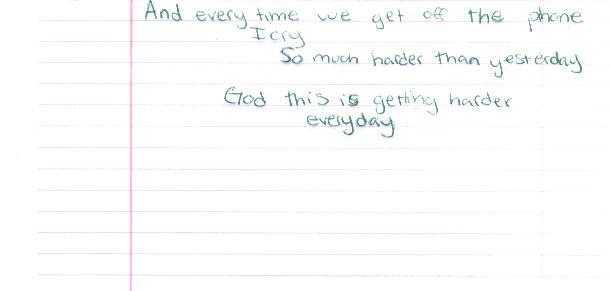 And every time we get off the phone
I cry
So much harder than yesterday
God this is getting harder
everyday